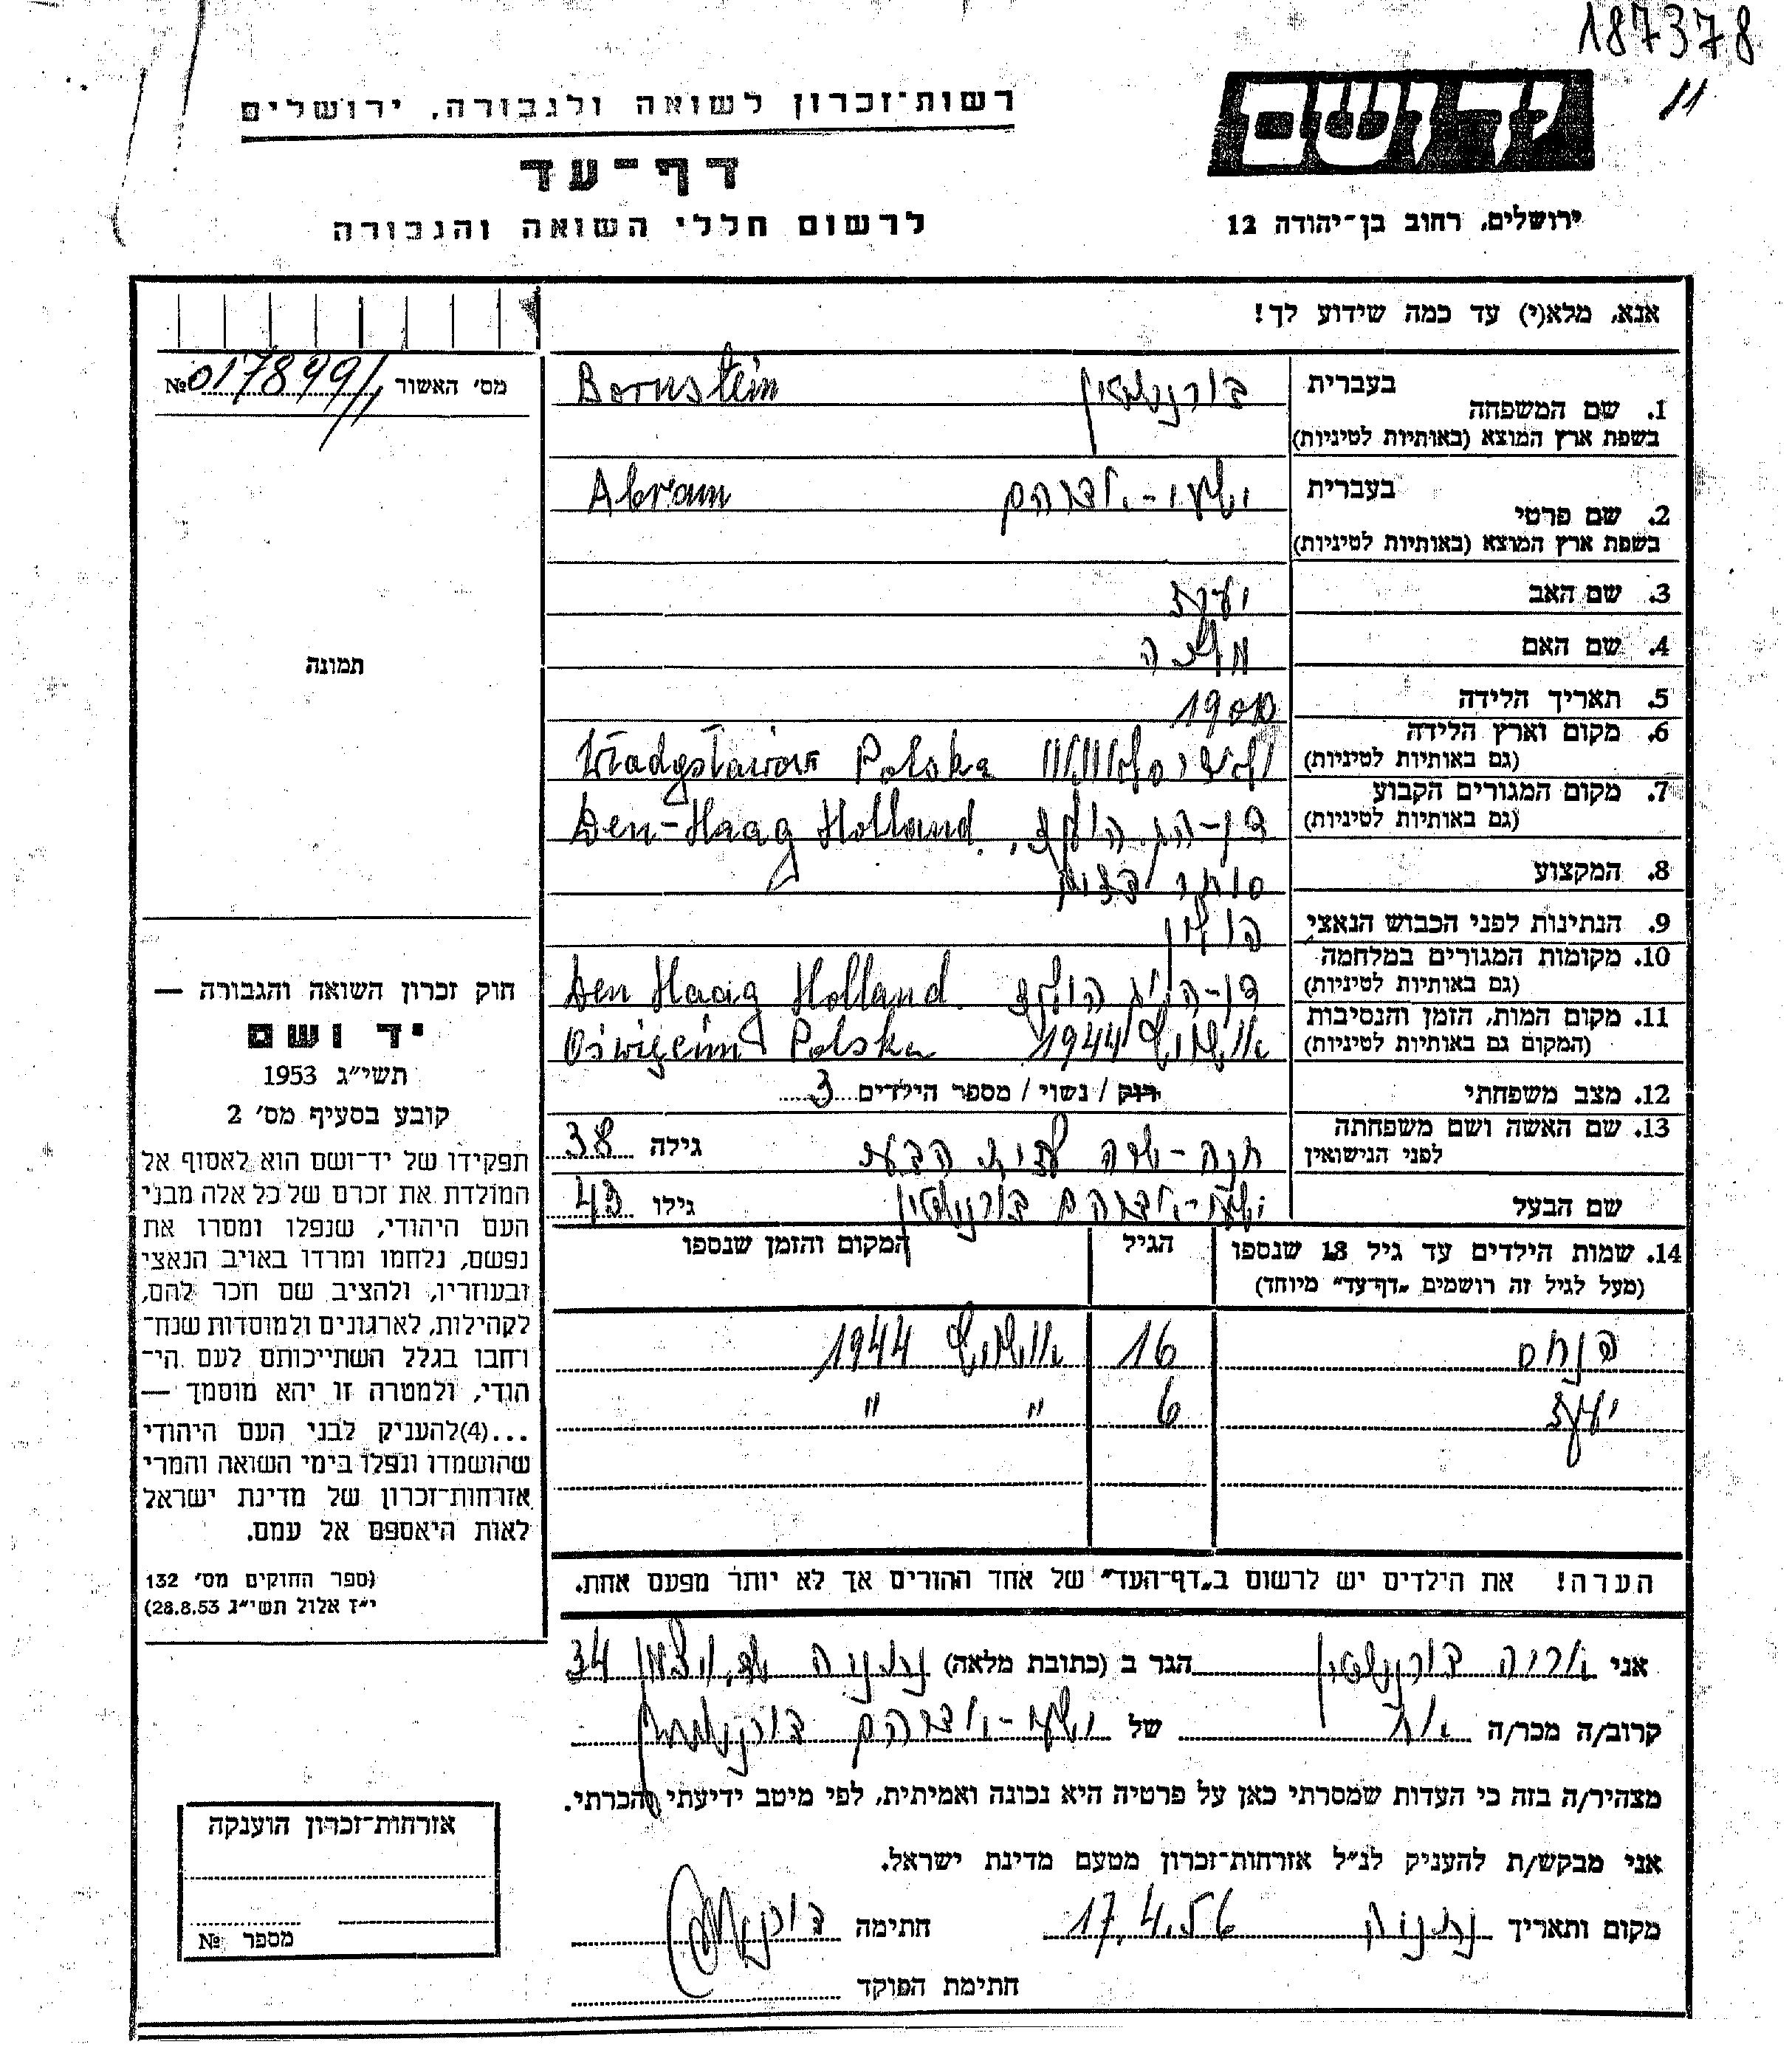 187378
11
יד ושם
רשות-זכרון לשואה ולגבורה, ירושלים
דף-עד
לרשום חללי השואה והגבורה
ירושלים, רחוב בן-יהודה 12
אנא, מלא(י) עד כמה שידוע לך!
מס' האשור №017899/
1. שם המשפחה בעברית בורנשטאין Bornstein
בשפת ארץ המוצא (באותיות לטיניות)
2. שם פרטי בעברית ישעי-אברהם Abram
בשפת ארץ המוצא (באותיות לטיניות)
3. שם האב יעקב
4. שם האם מלכה
תמונה
5. תאריך הלידה 1900
6. מקום וארץ הלידה Polska
(גם באותיות לטיניות)
7. מקום המגורים הקבוע דן-הג הולנד. Den-Haag Holland
(גם באותיות לטיניות)
8. המקצוע סוחר
9. הנתינות לפני הכבוש הנאצי פולין
10. מקומות המגורים במלחמה דן-האג הולנד Den Haag Holland
(גם באותיות לטיניות)
11. מקום המות, הזמן והנסיבות אושוויץ 1944 Polska
(המקום גם באותיות לטיניות)
12. מצב משפחתי רווק / נשוי / מספר הילדים 3
13. שם האשה ושם משפחתה חנה-שרה לבית גילה 38
לפני הנישואין
שם הבעל ישעי-אברהם בורנשטאין גילו 43
14. שמות הילדים עד גיל 18 שנספו הגיל המקום והזמן שנספו
(מעל לגיל זה רושמים "דף-עד" מיוחד)
פנחס 16 אושוויץ 1944
יעקב 6 " "
הערה! את הילדים יש לרשום ב"דף-העד" של אחד ההורים אך לא יותר מפעם אחת.
אני אריה בורנשטאין הגר ב (כתובת מלאה) נתניה 34
קרוב/ה מכר/ה אח של ישעי-אברהם בורנשטאין
מצהיר/ה בזה כי העדות שמסרתי כאן על פרטיה היא נכונה ואמיתית, לפי מיטב ידיעתי והכרתי.
אני מבקש/ת להעניק לנ"ל אזרחות-זכרון מטעם מדינת ישראל.
מקום ותאריך נתניה 17.4.56 חתימה
חתימת הפוקד
חוק זכרון השואה והגבורה —
יד ושם
תשי"ג 1953
קובע בסעיף מס' 2
תפקידו של יד-ושם הוא לאסוף אל
המולדת את זכרם של כל אלה מבני
העם היהודי, שנפלו ומסרו את
נפשם, נלחמו ומרדו באויב הנאצי
ובעוזריו, ולהציב שם וזכר להם,
לקהילות, לארגונים ולמוסדות שנח-
רחבו בגלל השתייכותם לעם הי-
הודי, ולמטרה זו יהא מוסמך —
...(4)להעניק לבני העם היהודי
שהושמדו ונפלו בימי השואה והמרי
אזרחות-זכרון של מדינת ישראל
לאות היאספם אל עמם.
(ספר החוקים מס' 132
י"ז אלול תשי"ג 28.8.53)
אזרחות-זכרון הוענקה
מספר №